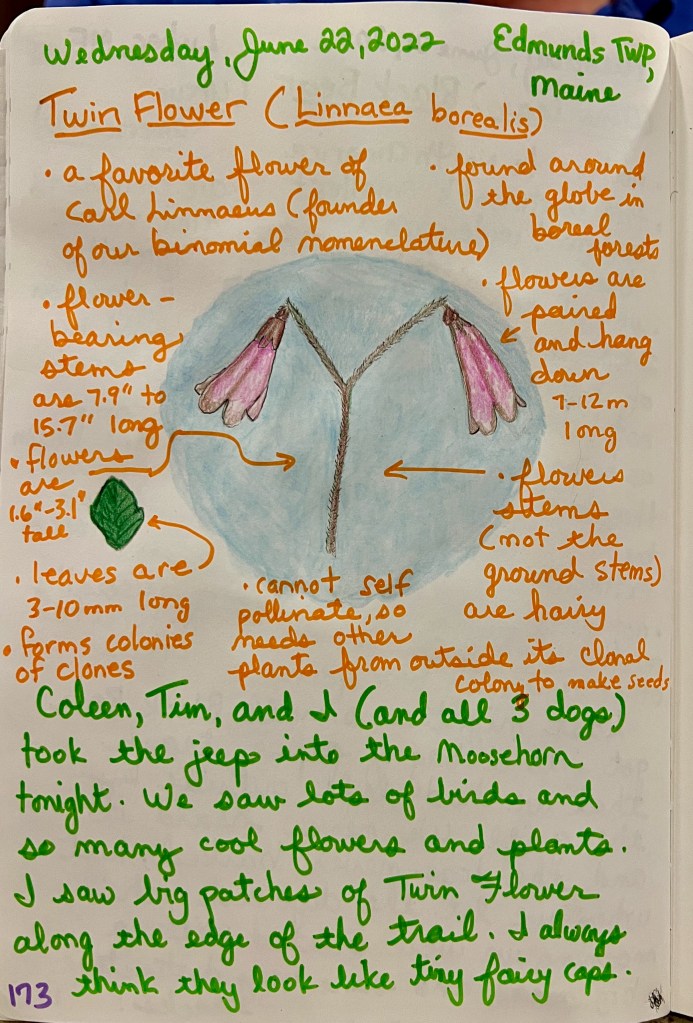 Wednesday, June 22, 2022
Edmunds Twp,
Maine
Twin Flower (Linnaea borealis)
• a favorite flower of
Carl Linnaeus (founder
of our binomial nomenclature)
• found around
the globe in
boreal
forests
• flower-
bearing
stems
are 7.9" to
15.7" long
• flowers are
paired
and hang
down
7-12m
long
• flowers
are
1.6"-3.1"
tall
• flowers
stems
(not the
ground stems)
are hairy
• leaves are
3-10mm long
• forms colonies
of clones
• cannot self
pollinate, so
needs other
plants from outside its clonal
colony to make seeds
Coleen, Tim, and I (and all 3 dogs)
took the jeep into the Moosehorn
tonight. We saw lots of birds and
so many cool flowers and plants.
I saw big patches of Twin Flower
along the edge of the trail. I always
think they look like tiny fairy caps.
173